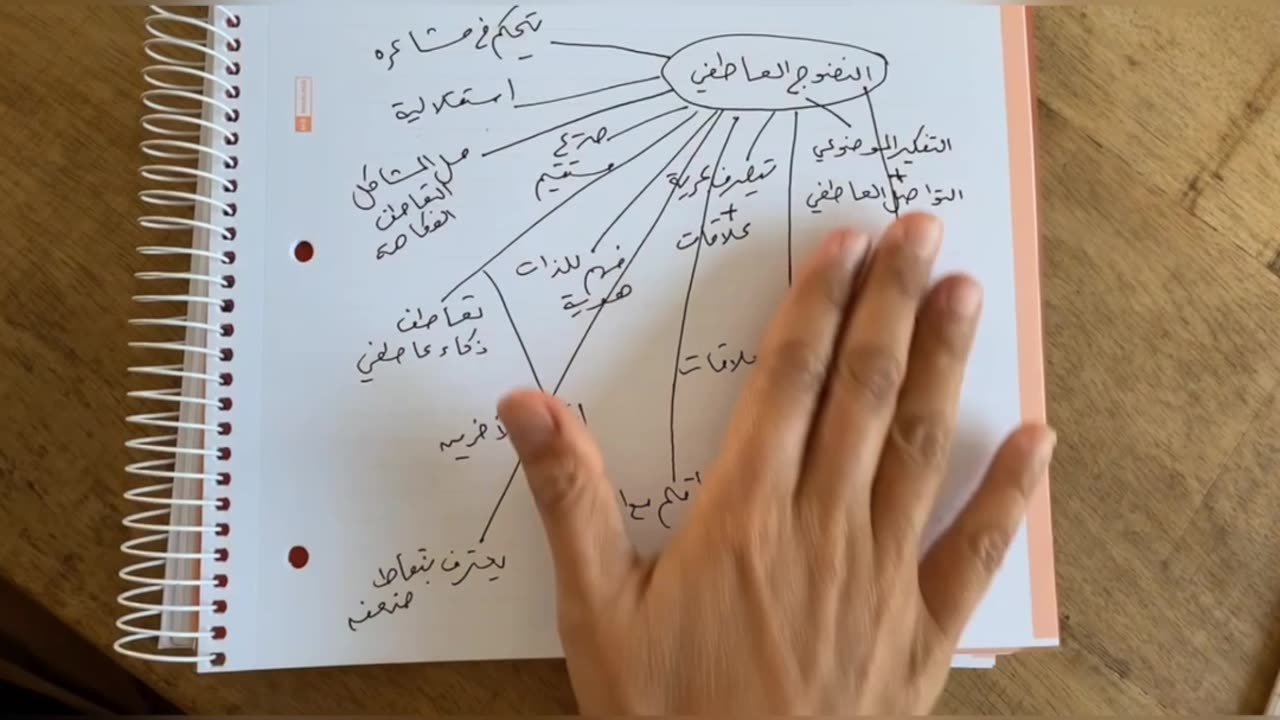 النضوج العاطفي
يتحكم في مشاعره
استقلالية
حل المشاكل
التعاطف
الفكاهة
صريح
مستقيم
تعاطف
ذكاء عاطفي
فهم للذات
هوية
يتصرف بحرية
+
علاقات
التفكير الموضوعي
+
التواصل العاطفي
علاقات
يعترف بنقاط
ضعفه